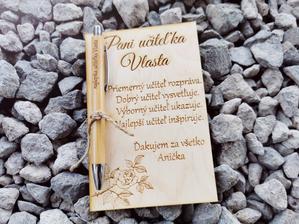 Pani učiteľka
Vlasta
Priemerný učiteľ rozpráva.
Dobrý učiteľ vysvetľuje.
Výborný učiteľ ukazuje.
Najlepší učiteľ inšpiruje.
Ďakujem za všetko
Anička